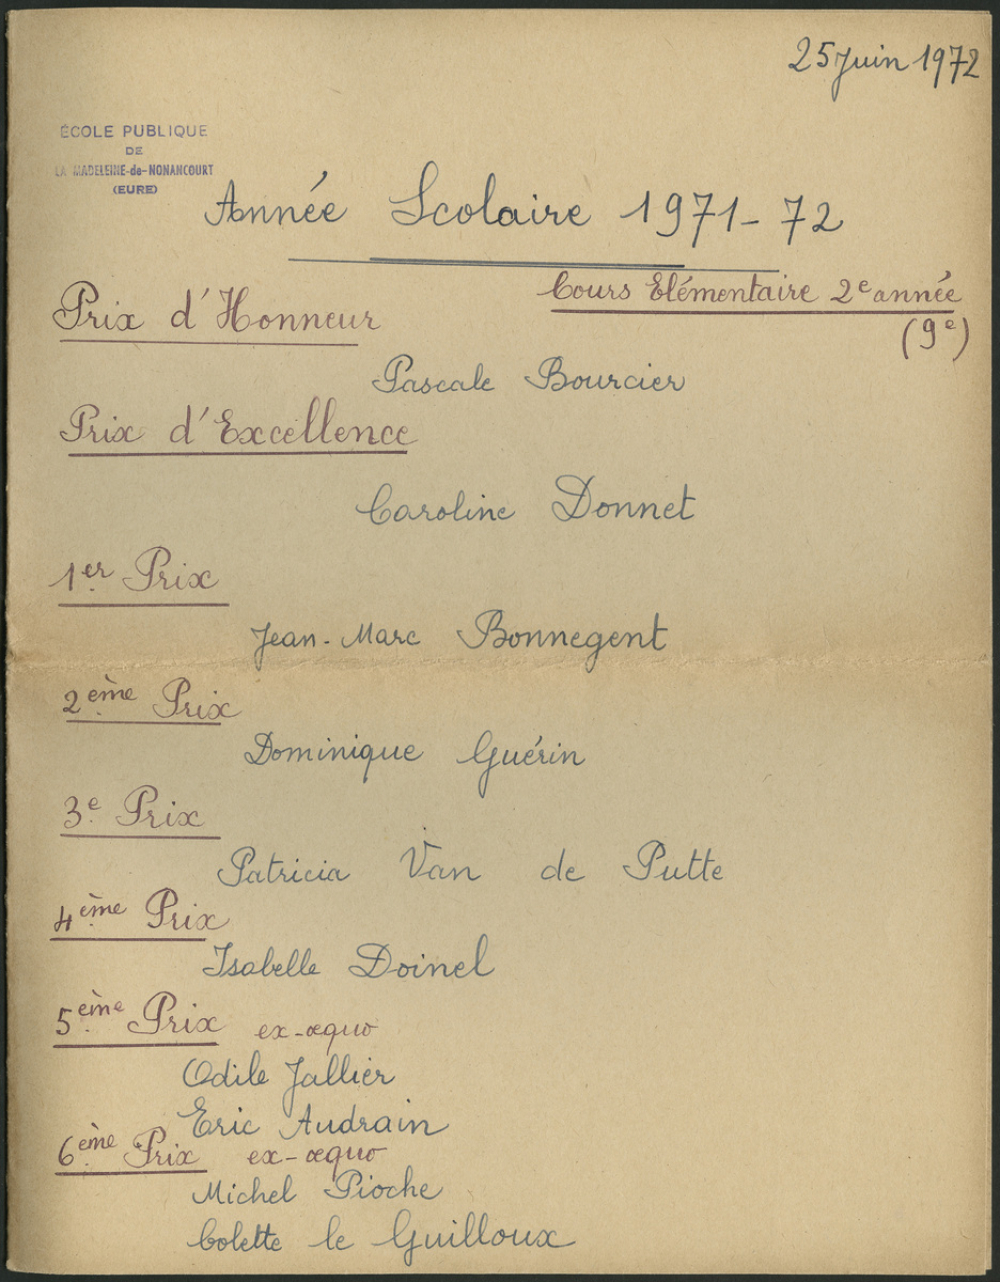 25 Juin 1972
ÉCOLE PUBLIQUE
DE
LA MADELEINE-de-NONANCOURT
(EURE)
Année Scolaire 1971-72
Cours Elémentaire 2e année
(9e)
Prix d'Honneur
Pascale Bourcier
Prix d'Excellence
Caroline Donnet
1er Prix
Jean-Marc Bonnegent
2ème Prix
Dominique Guérin
3e Prix
Patricia Van de Putte
4ème Prix
Isabelle Doinel
5ème Prix ex-æquo
Odile Jallier
Eric Audrain
6ème Prix ex-æquo
Michel Pioche
Colette le Guilloux